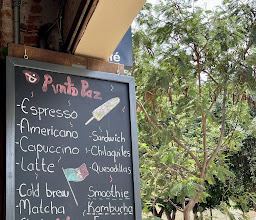 fé
Punto Paz
-Espresso
-Americano
-Capuccino
-Latte
-Cold brew
-Matcha
-Sándwich
-Chilaquiles
-Quesadillas
Smoothie
Kombucha